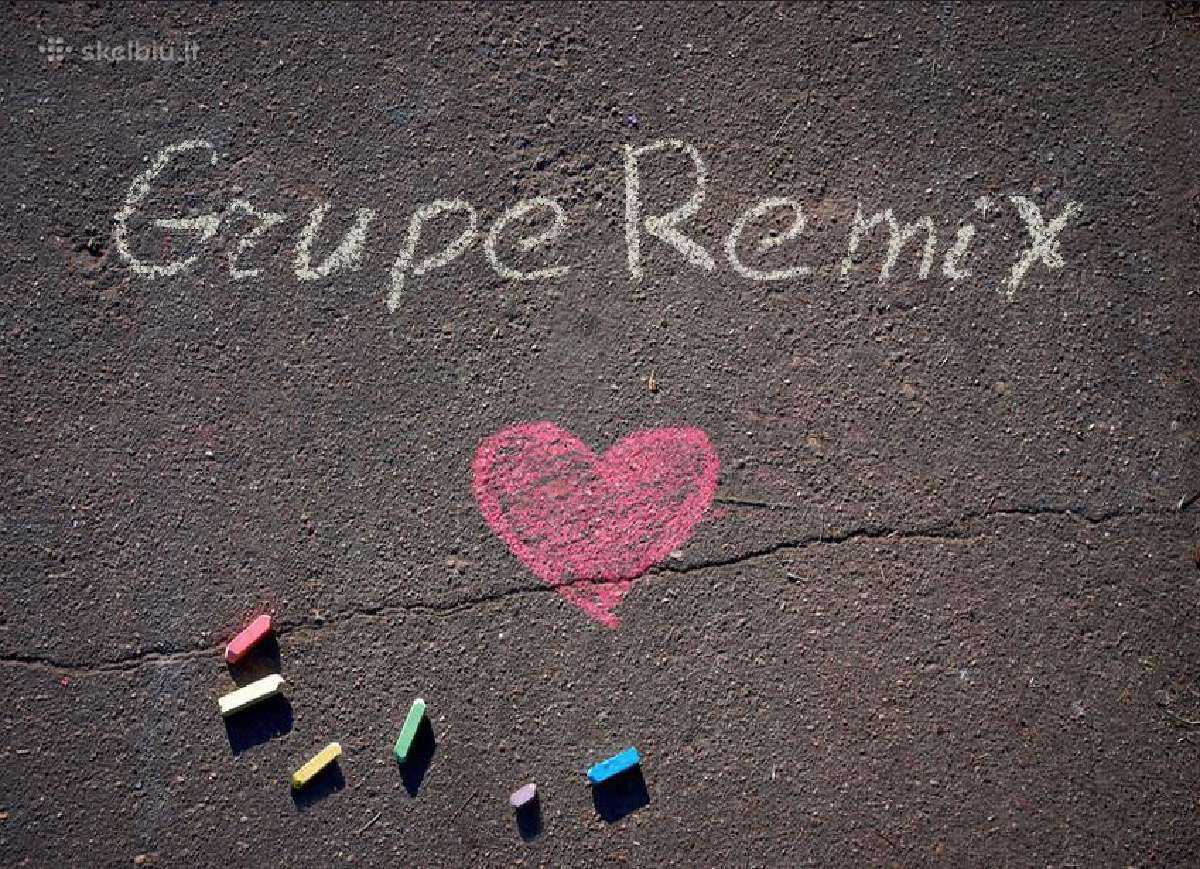 skelbiu.lt
Grupe Remix